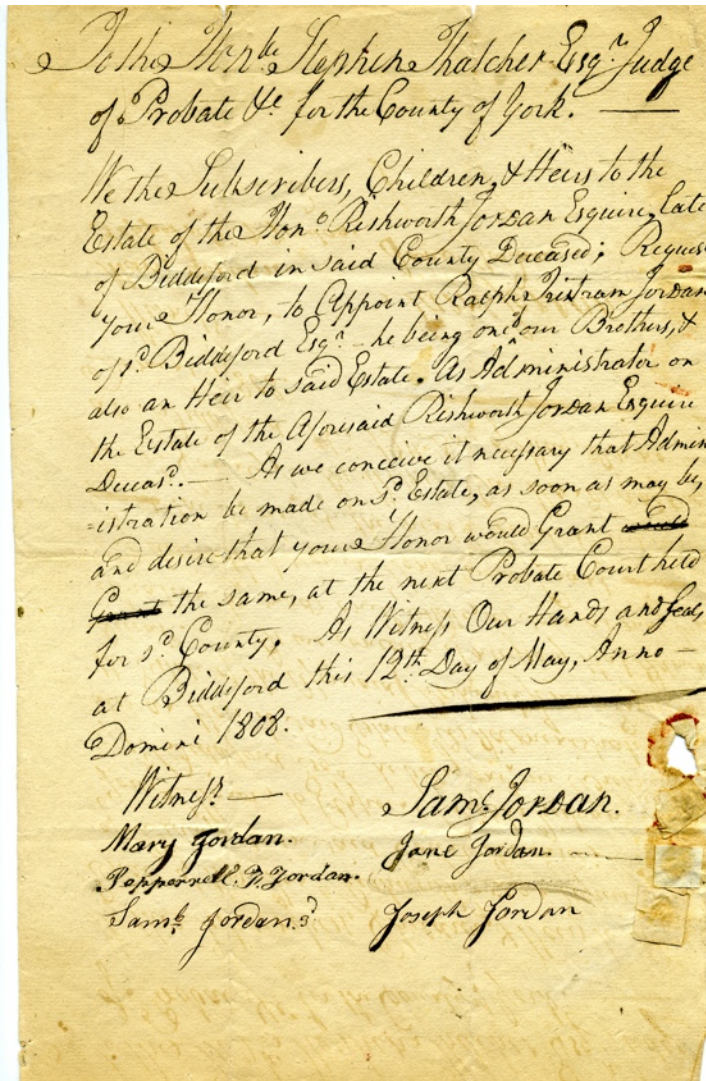 To the Hon.ble Stephen Thatcher Esq.r Judge
of Probate &c for the County of York. —
We the Subscribers, Children, & Heirs to the
Estate of the Hon.o Rishworth Jordan Esquire, Late
of Biddeford in said County Deceased; Reques
your Honor, to Appoint Ralph Tristram Jordan
of s.d Biddeford Esq.r — he being one of our Brothers, &
also an Heir to said Estate. As Administrator on
the Estate of the Aforesaid Rishworth Jordan Esquire
Deceas.d. — As we conceive it necessary that Admin
=istration be made on s.d Estate, as soon as may be,
and desire that your Honor would Grant would
Grant the same, at the next Probate Court held
for s.d County. As Witness Our Hands and Seals,
at Biddeford this 12th Day of May, Anno —
Domini 1808.
Witness —
Mary Jordan.
Pepperrell F. Jordan.
Sam.l Jordan 3.d
Sam.l Jordan.
Jane Jordan. —
Joseph Jordan